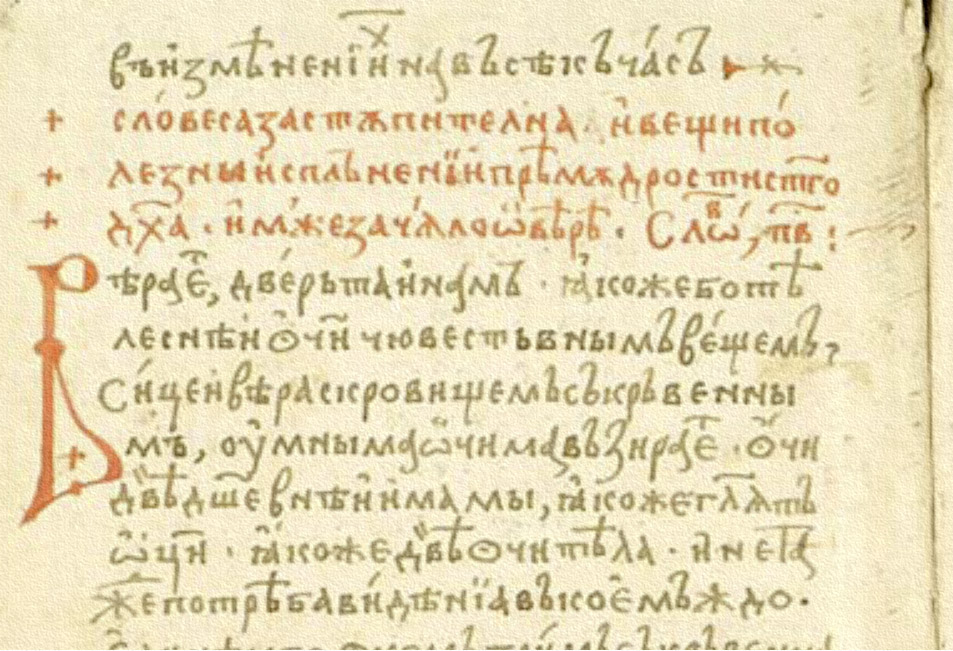 въи҆змѣненїи҆х нꙗвъсѣкъча́съ
сло́весаꙁаст꙼ѫпи́телна и҆вещнпо́
леꙁныи҆сплъненїи҆прѣмѫдростистго
дх҃а · и҆мѫжеꙁача́лоѿвѣ́рѣ · Сло҇в, п҃в :
Вѣраѥ҇, две́рьтаи́намъ · ꙗ҆кожеботѣ
леснѣи ѻ҆чи чювестъвнымъве́щемъ,
Си́цеи҆вѣраскровищемъсъкръвенны
мъ, оу҆мныма ѻ҆чимавъꙁираѥ҇ · ѻ҆́чи
двѣдш҃евнѣи҆ имамы, ꙗ҆кожегл҃ѧтъ
ѡ҆ц҃и · ꙗ҆кожедвѣѻчитѣла · и҆неꙗ҇
жепотрѣбави́дѣнїавъкоемъждо ·